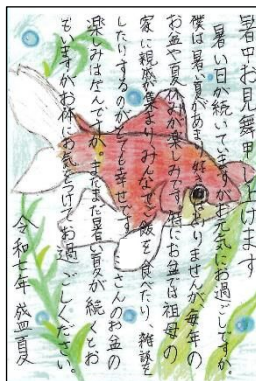 暑中お見舞申し上げます
暑い日が続いていますがお元気にお過ごしですか。
僕は暑い夏があまり好きではありませんが、毎年の
お盆や夏休みが楽しみです。特にお盆では祖母の
家に親戚が集まり、みんなでご飯を食べたり、雑談を
したりするのがとても幸せです。さんのお盆の
楽しみはなんですか。まだまだ暑い夏が続くとお
もいますがお体にお気をつけてお過ごしください。
令和七年 盛夏